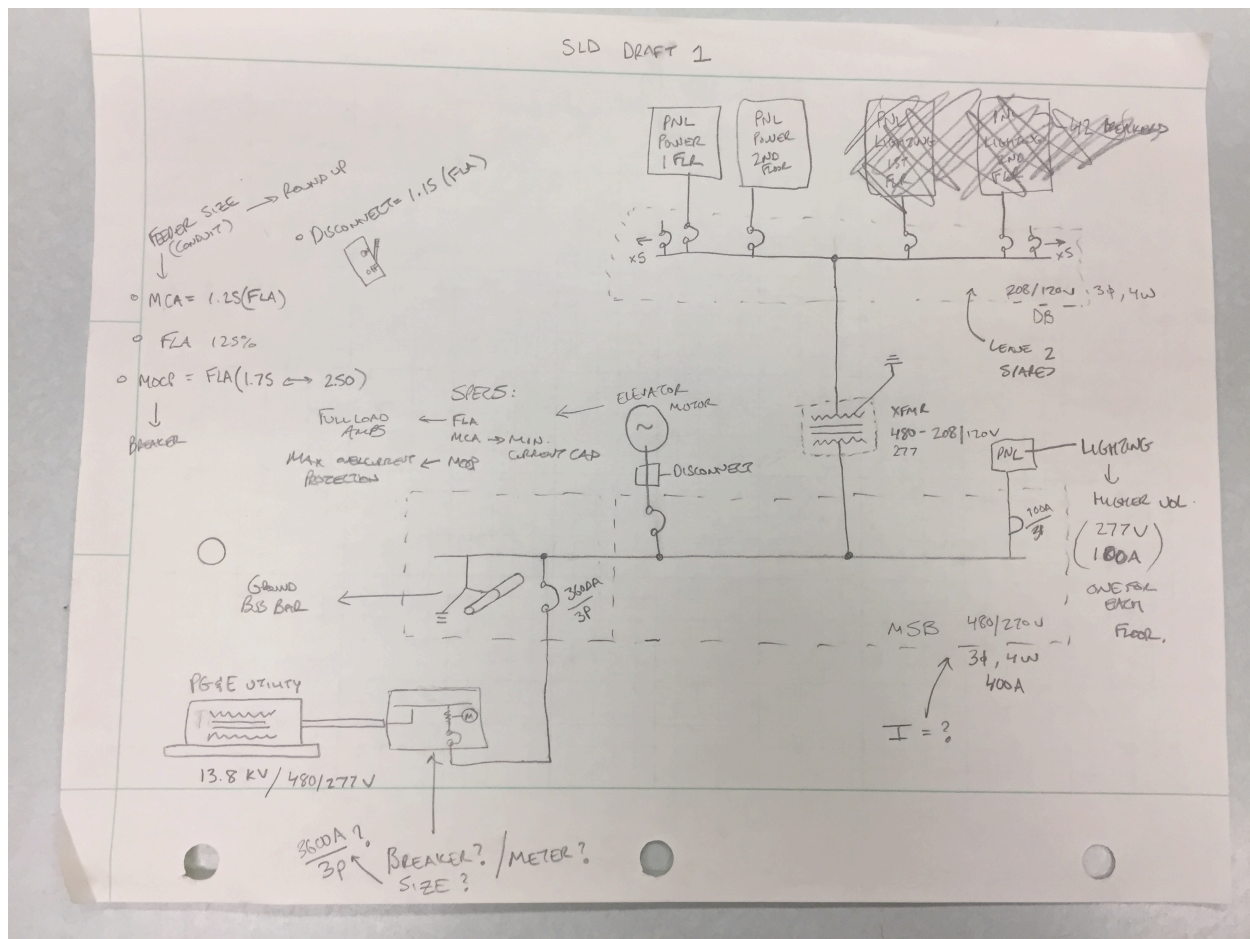 SLD DRAFT 1
PNL
POWER
1 FLR
PNL
POWER
2ND
FLOOR
PNL
LIGHTING
1ST
FLR
PNL
LIGHTING
2ND
FLR
42
x5
x5
208/120V 3ϕ, 4W
DB
LEAVE 2
SPARES
FEEDER SIZE → ROUND UP
(CONDUIT)
DISCONNECT = 1.15 (FLA)
ON
OFF
MCA = 1.25(FLA)
FLA 125%
MOCP = FLA(1.75 ↔ 250)
BREAKER
SPECS:
FULL LOAD ← FLA
AMPS
MCA → MIN.
CURRENT CAP
MAX OVERCURRENT ← MOCP
PROTECTION
ELEVATOR
MOTOR
~
DISCONNECT
XFMR
480-208/120V
277
PNL
LIGHTING
HIGHER VOL.
(277V
100A)
ONE FOR
EACH
FLOOR.
100A
3P
GROUND
BUS BAR
3600A
3P
MSB 480/270V
3ϕ, 4W
400A
I = ?
PG&E UTILITY
M
13.8 KV/480/277V
3600A?
3P
BREAKER? / METER?
SIZE?